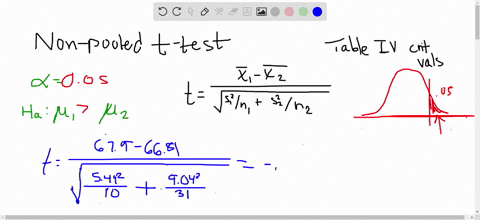 Non-pooled t-test
Table IV crit
vals
α=0.05
Ha: μ₁ > μ₂
t = (x̄₁ - x̄₂) / √(s₁²/n₁ + s₂²/n₂)
.05
t = (67.9 - 66.81) / √(5.49²/10 + 9.04²/31) = -.